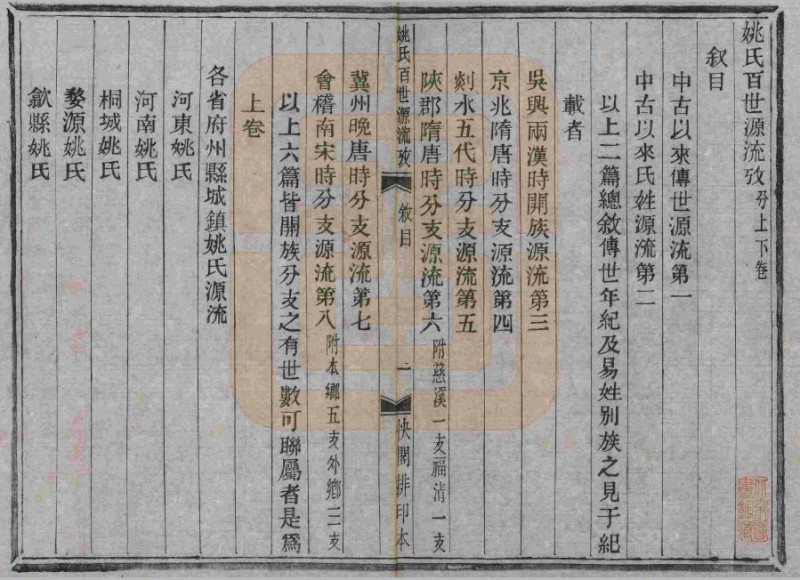 姚氏百世源流攷 分上下卷
敘目
中古以來傳世源流第一
中古以來氏姓源流第二
以上二篇總敘傳世年紀及易姓別族之見于紀
載者
吳興兩漢時開族源流第三
京兆隋唐時分支源流第四
剡水五代時分支源流第五
陝郡隋唐時分支源流第六 附慈溪一支福清一支
姚氏百世源流攷 敘目 二 快閣排印本
冀州晚唐時分支源流第七
會稽南宋時分支源流第八 附本鄉五支外鄉三支
以上六篇皆開族分支之有世數可聯屬者是為
上卷
各省府州縣城鎮姚氏源流
河東姚氏
河南姚氏
桐城姚氏
婺源姚氏
歙縣姚氏